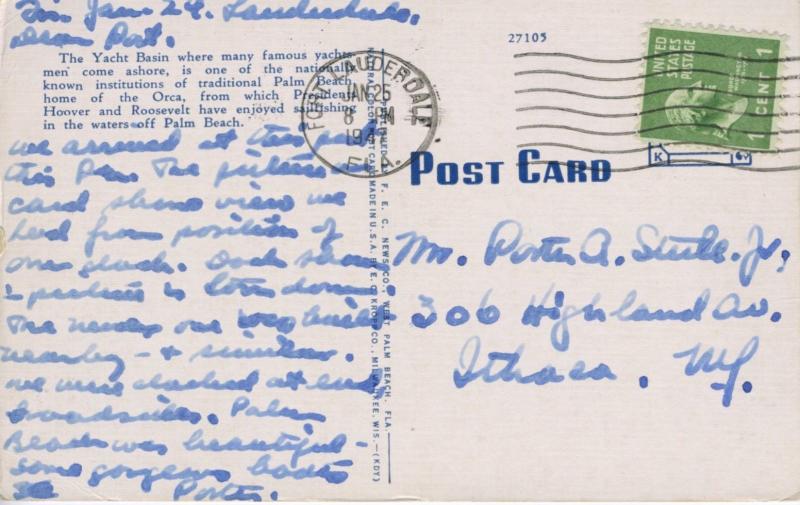 Fri Jan 24. Lauderdale.
Dear Port.
The Yacht Basin where many famous yachts-
men come ashore, is one of the nationally
known institutions of traditional Palm Beach,
home of the Orca, from which Presidents
Hoover and Roosevelt have enjoyed sailfishing
in the waters off Palm Beach.
we arrived at this
this P.M. The picture on
card shows view we
had from position of
our dock. Dock shown
in picture is torn down.
The newer one was built
nearby - + similar.
we were docked at end
broadside. Palm
Beach was beautiful -
some gorgeous boats
Porter.
27105
FORT LAUDERDALE
JAN 25
8 PM
19
UNITED
STATES
POSTAGE
1 CENT 1
POST CARD
F. E. C. NEWS CO., WEST PALM BEACH, FLA.
MADE IN U.S.A. BY E. C. KROPP CO., MILWAUKEE, WIS.—(KDY)
Mr. Porter A. Steele. Jr,
306 Highland Av.
Ithaca, NY.